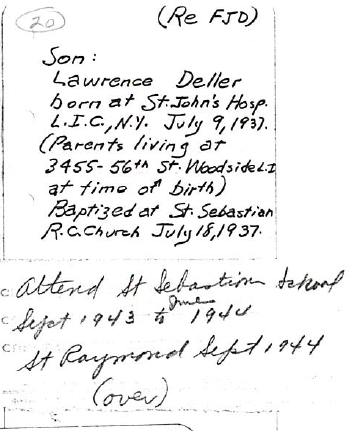 20
(Re FJD)
Son:
Lawrence Deller
born at St. John's Hosp.
L.I.C., N.Y. July 9, 1937.
(Parents living at
3455-56th St. Woodside L.I
at time of birth)
Baptized at St. Sebastian
R.C. Church July 18, 1937.
Attend St Sebastian School
Sept 1943 to June 1944
St Raymond Sept 1944
(over)